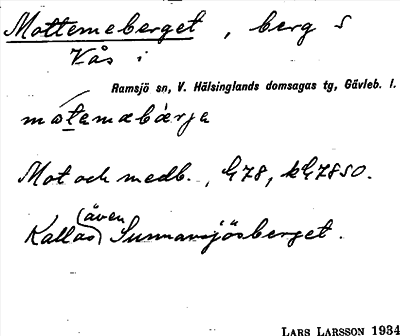 Mottemeberget, berg S
Vås i
Ramsjö sn, V. Hälsinglands domsagas tg, Gävleb. l.
Mot och medb., G78, kG7850.
även
Kallas Sunnansjösberget.
LARS LARSSON 1934